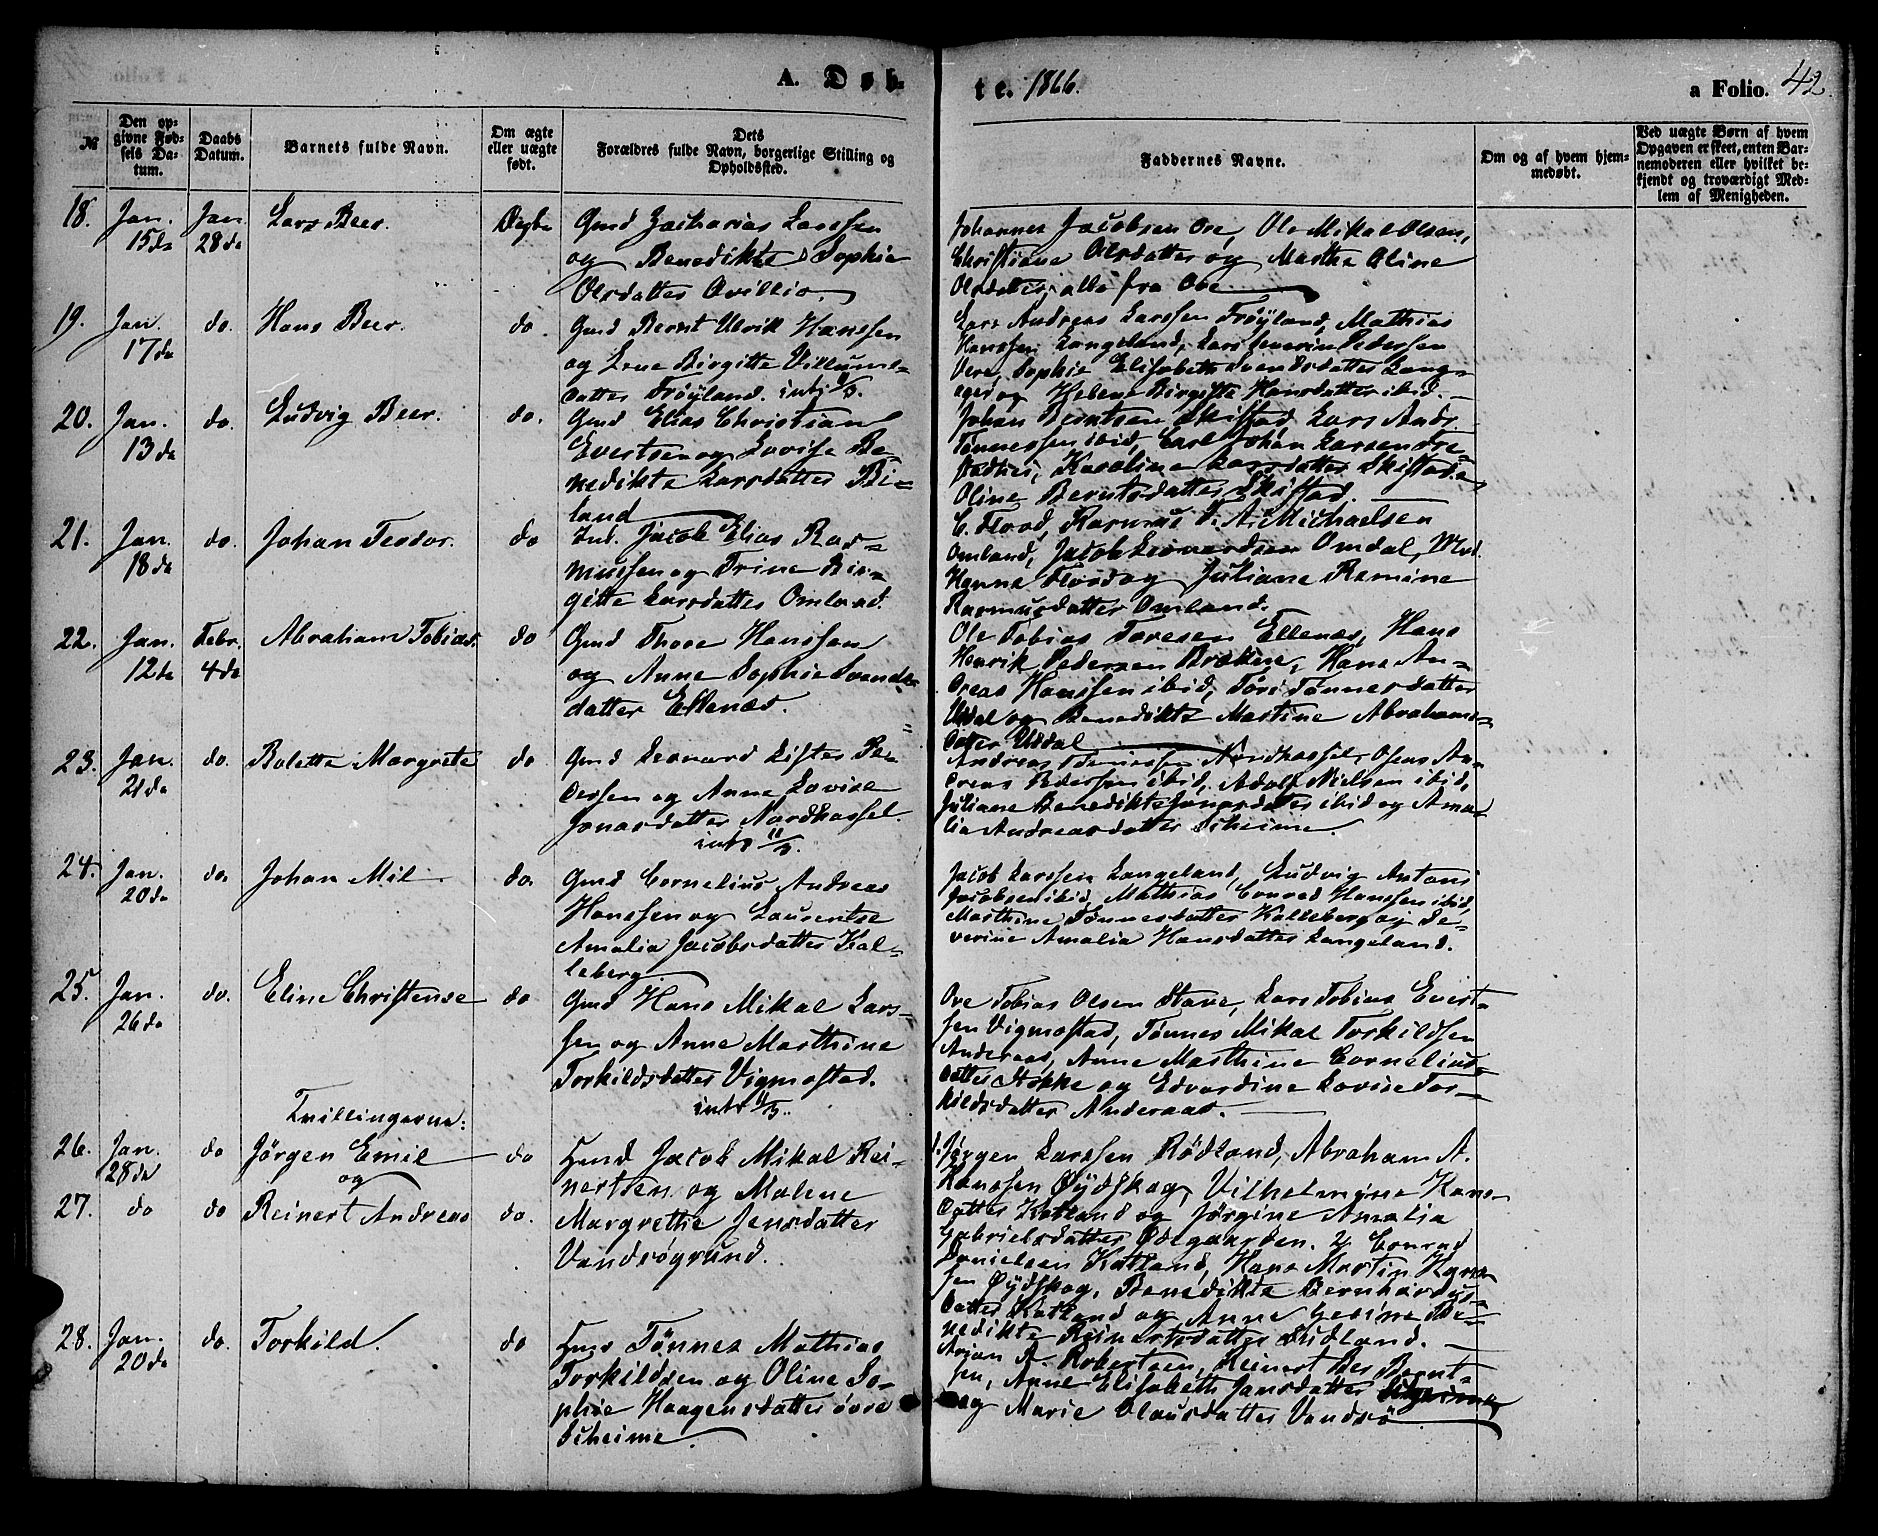 A. Døb-
te. 1866.
a Folio. 42.
№
Den op-
givne Fød-
sels Da-
tum.
Daabs
Datum.
Barnets fulde Navn.
Om ægte
eller uægte
født.
Dets
Forældres fulde Navn, borgerlige Stilling og
Opholdssted.
Faddernes Navne.
Om og af hvem hjem-
medøbt.
Ved uægte Børn af hvem
Opgaven er skeet, enten Bar-
nemoderen eller hvilket be-
kjendt og troværdigt Med-
lem af Menigheden.
18. Jan. 15de
Jan 28de
Lars Beer.
Ægte
Gmd Zacharias Larssen
og Benedikte Sophie
Olsdatter
Johannes Jacobsen Ore, Ole Mikal Olsen,
Christiane Olsdatter og Marthe Oline
Olsdatter, alle fra Ore
19. Jan. 17de
do.
Hans Beer.
do.
Gmd Bernt Ulrik Hanssen
og Lene Birgitte Villums-
datter Frøyland.
Lars Andreas Larssen Frøyland, Mathias
Hanssen Langeland, Lars Severin Pedersen
Vere, Sophie Elisabeth Svendsdatter Lang-
og Helene Birgitte Hansdatter ibid.
20. Jan. 13de
do.
Ludvig Beer.
do.
Gmd Elias Christian
Evertsen og Lovise Be-
nedikte Larsdatter Bi-
land
Johan Berntsen Skifstad, Lars Andr.
Tønnessen ibid, Carl Johan Larsen
Karoline Larsdatter Skifstad
Oline Berntsdatter Skifstad.
21. Jan. 18de
do.
Johan Teodor.
do
Ind. Jacob Elias Ras-
mussen og Trine Bir-
gitte Larsdatter Omland.
C. Flood, Rasmus Michaelsen
Omland, Jacob Leonardsen Omdal, Md.
Hanna Flood og Juliane Ramine
Rasmusdatter Omland.
22. Jan. 12te
Febr. 4de
Abraham Tobias.
do
Gmd Thore Hanssen
og Anne Sophie Svends-
datter Ellenæs.
Ole Tobias Toresen Ellenæs, Hans
Henrik Pedersen Brække, Hans An-
dreas Hanssen ibid, Tøri Tønnesdatter
Uddal og Benedikte Martine Abrahams-
datter Uddal
23. Jan. 21de
do.
Bolette Margrete
do
Gmd Leonard Lister Pe-
dersen og Anne Lovise
Jonasdatter Nordhassel.
intr 11/3.
Andreas Nordhassel,
dreas Pedersen ibid, Adolf Nielsen ibid,
Juliane Benedikte Jonasdatter ibid og Ama-
lia Andreasdatter Skeime.
24. Jan. 20de
do.
Johan Mil
do.
Gmd Cornelius Andreas
Hanssen og Laurentse
Amalia Jacobsdatter Kal-
leberg
Jacob Larssen Langeland, Ludvig Antoni
Jacobsen ibid, Mathias Conrad Hanssen ibid,
Marthine Tønnesdatter Kalleberg og Se-
verine Amalia Hansdatter Langeland.
25. Jan. 26de
do.
Eline Christense
do
Gmd Hans Mikal Lars-
sen og Anne Marthine
Torkildsdatter Vigmostad.
intr 11/3.
Ove Tobias Olsen Stave, Lars Tobias Evert-
sen Vigmostad, Tønnes Mikal Torkildsen
Anderaas, Anne Marthine Cornelius-
datter Stokke og Edvardine Lovise Tor-
kildsdatter Anderaas.
Tvillingerne:
26. Jan. 28de
do
Jørgen Emil
og
do
27. do
do
Reinert Andreas
do.
Hmd Jacob Mikal Rei-
nertsen og Malene
Margrethe Jensdatter
Vandsøgrund.
1. Jørgen Larssen Rødland, Abraham A.
Hanssen Øydskog, Vilhelmine Hans-
datter Katland og Jørgine Amalia
Gabrielsdatter Ødegaarden. 2, Conrad
Danielsen Katland, Hans Martin Hans-
sen Øydskog, Benedikte Bernhardus-
datter Katland og Anne Gesine Be-
nedikte Reinertsdatter
28. Jan. 20de
do.
Torkild.
do
Hmd Tønnes Mathias
Torkildsen og Oline So-
phie Haagensdatter øvre
Skeime.
Arian A. Robertsen, Reinert Beer Bernt-
sen, Anne Elisabeth Jansdatter
og Marie Olausdatter Vandsø